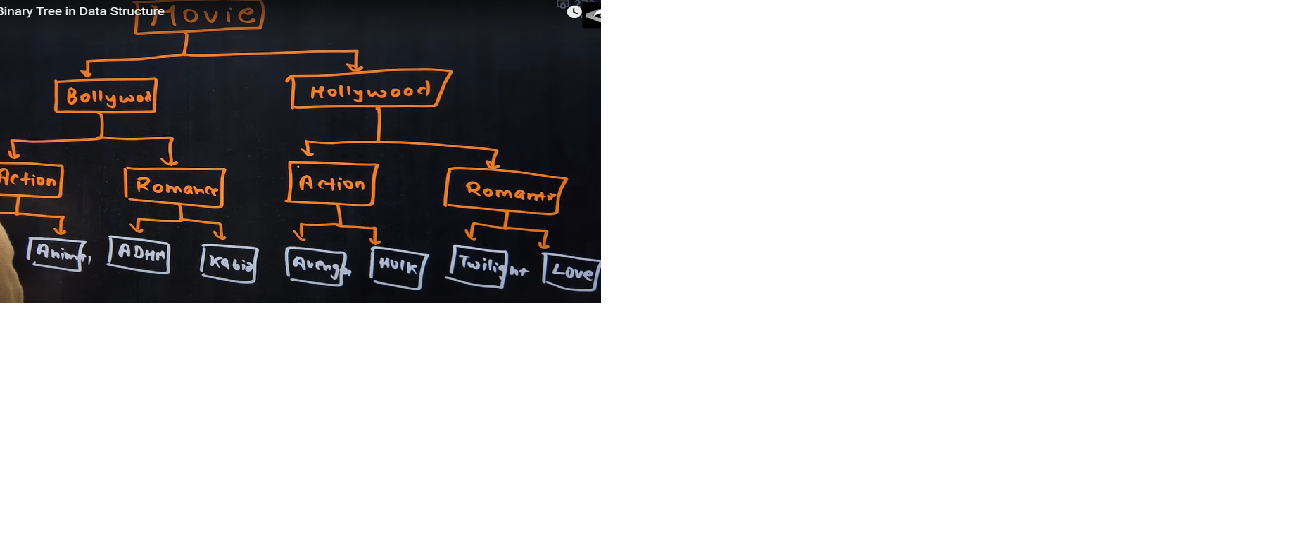 Binary Tree in Data Structure
Movie
Bollywood
Hollywood
Action
Romance
Action
Romantic
ADHM
Hulk
Twilight
Love